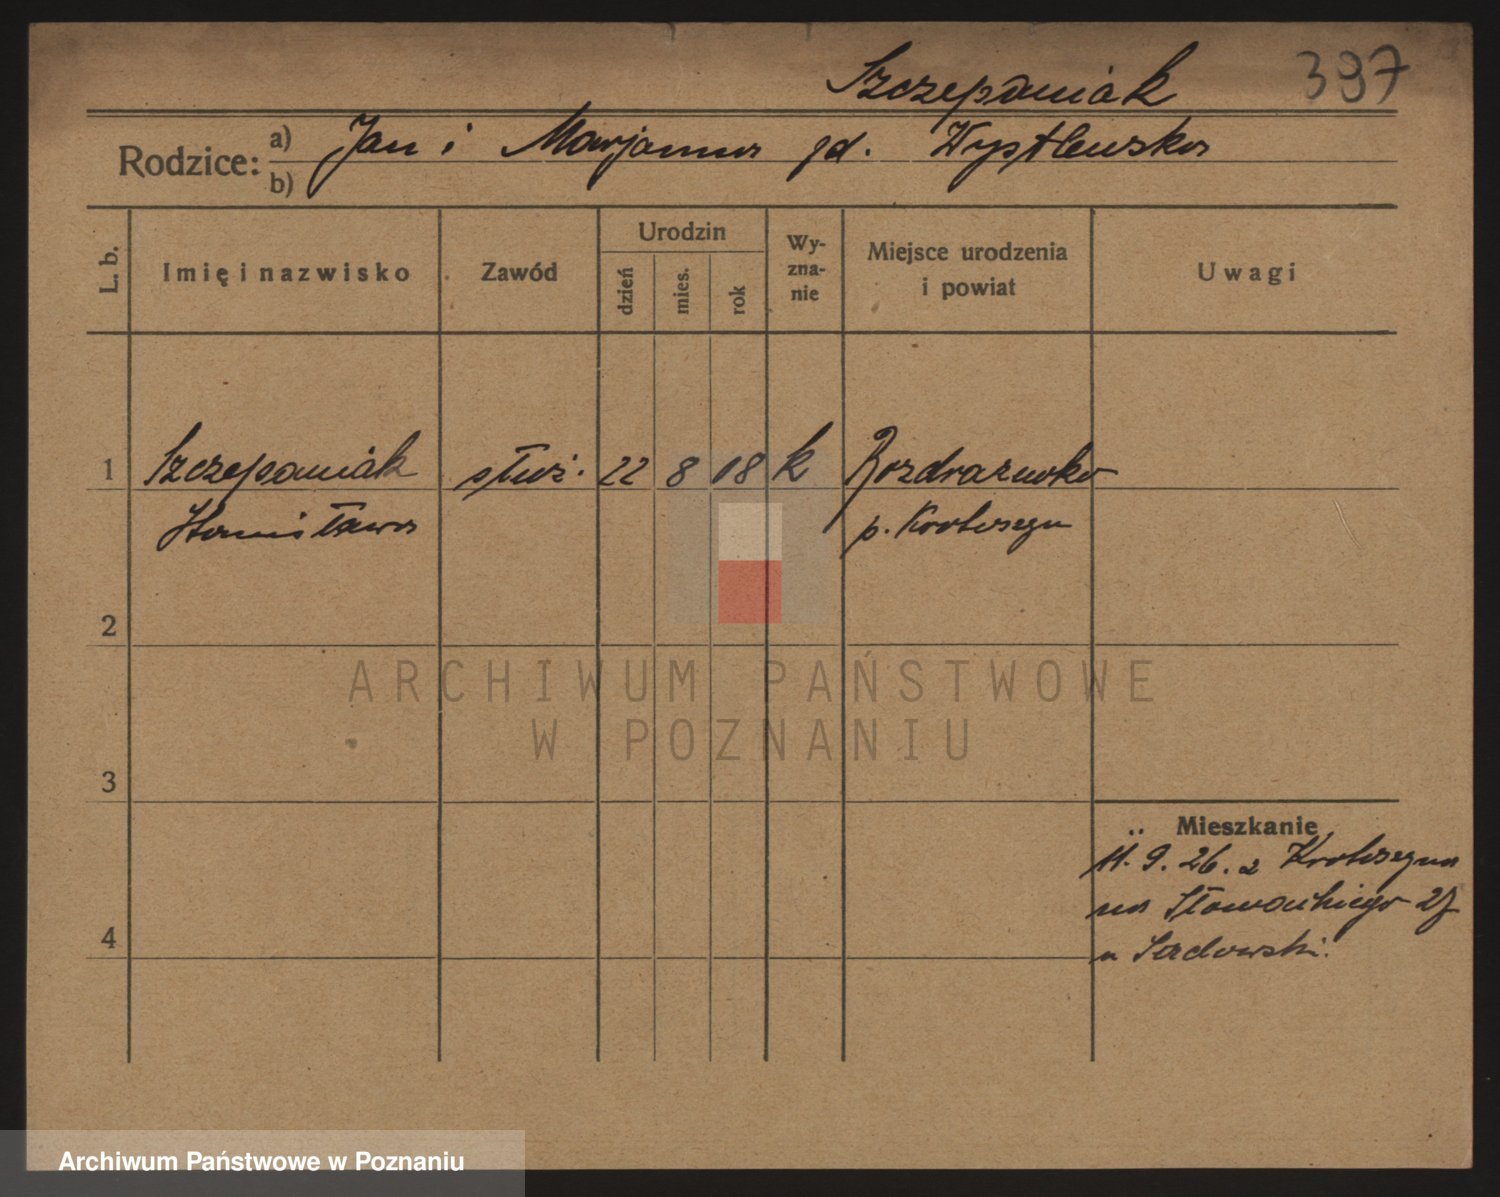 Szczepaniak 397
Rodzice: a) Jan i Marjanna zd.
b)
L. b.
Imię i nazwisko
Zawód
Urodzin
dzień
mies.
rok
Wy-
zna-
nie
Miejsce urodzenia
i powiat
Uwagi
1 Szczepaniak służ. 22 8 08 k Rozdrażewko
Stanisława p. Krotoszyn
2
3
4
ARCHIWUM PAŃSTWOWE
W POZNANIU
Mieszkanie
11. 9. 26. z Krotoszyna
na Słowackiego
u Sadowski.
Archiwum Państwowe w Poznaniu